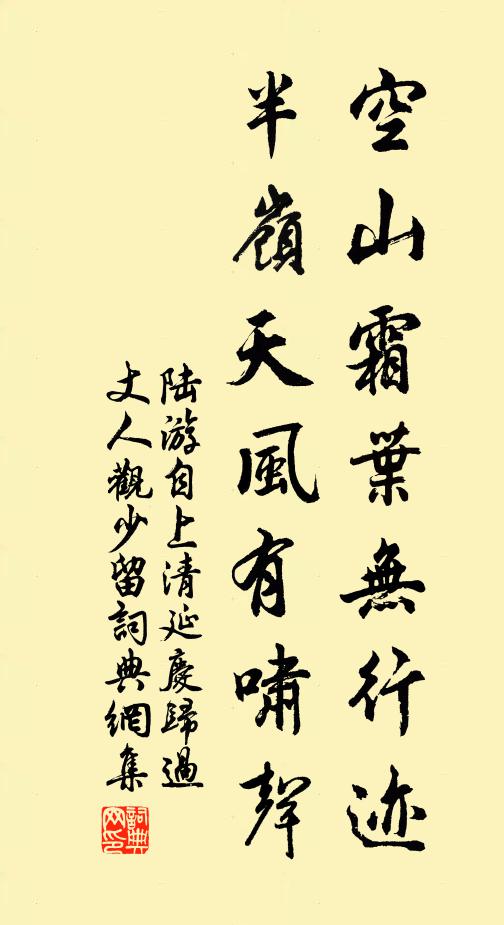 空山霜葉無行迹
半嶺天風有嘯聲
陆游自上清延慶歸過
丈人觀少留詞典網集
詞典
网印